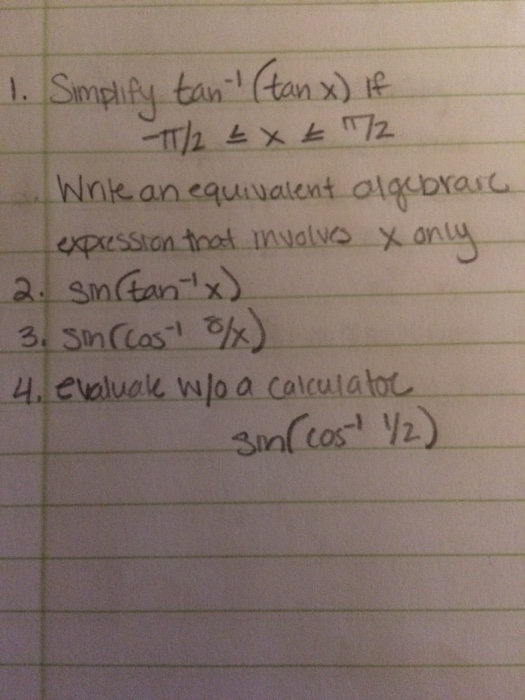 1. Simplify tan⁻¹(tan x) if
-π/2 ≤ x ≤ π/2
Write an equivalent algebraic
expression that involves x only
2. sin(tan⁻¹x)
3. sin(cos⁻¹ 8/x)
4. evaluate w/o a calculator
sin(cos⁻¹ 1/2)